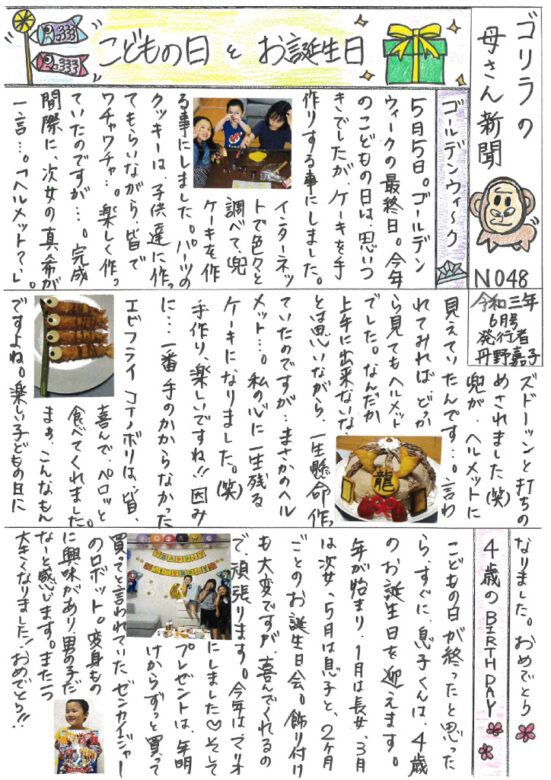 こどもの日とお誕生日
ゴリラの
母さん新聞
NO48
令和三年
6月号
発行者
丹野嘉子
ゴールデンウィ〜ク
5月5日。ゴールデン
ウィークの最終日。今年
のこどもの日は、思いつ
きでしたが、ケーキを手
作りする事にしました。
インターネッ
トで色々と
調べて、兜
ケーキを作
る事にしました。パーツの
クッキーは、子供達に作っ
てもらいながら、皆で
ワチャワチャ…。楽しく作っ
ていたのですが…。完成
間際に次女の真希が
一言…。「ヘルメット?」と。
ズドーンッと打ちの
めされました(笑)
兜が、ヘルメットに
見えていたんです…。言わ
れてみれば、どっか
ら見てもヘルメット
でした。なんだか
上手に出来ないな
とは思いながら、一生懸命作っ
ていたのですが…まさかのヘル
メット…。私の心に一生残る
ケーキになりました。(笑)
手作り、楽しいですね!!因み
に…一番手のかからなかった
エビフライコイノボリは、皆、
喜んで、ペロッと
食べてくれました。
まぁ、こんなもん
ですよね。楽しい子どもの日に
なりました。おめでとう
4歳のBIRTHDAY
こどもの日が終ったと思った
ら、すぐに、息子くんは、4歳
のお誕生日を迎えます。
年が始まり、1月は長女、3月
は次女、5月は息子と、2ヶ月
ごとのお誕生日会。飾り付け
も大変ですが、喜んでくれるの
で頑張ります。今年はマリオ
にしました♡そして
プレゼントは、年明
けからずっと買って
買ってと言われていたゼンカイジャー
のロボット。変身もの
に興味があり、男の子だ
なーと感じます。また1つ
大きくなりました!おめでとう!!
龍